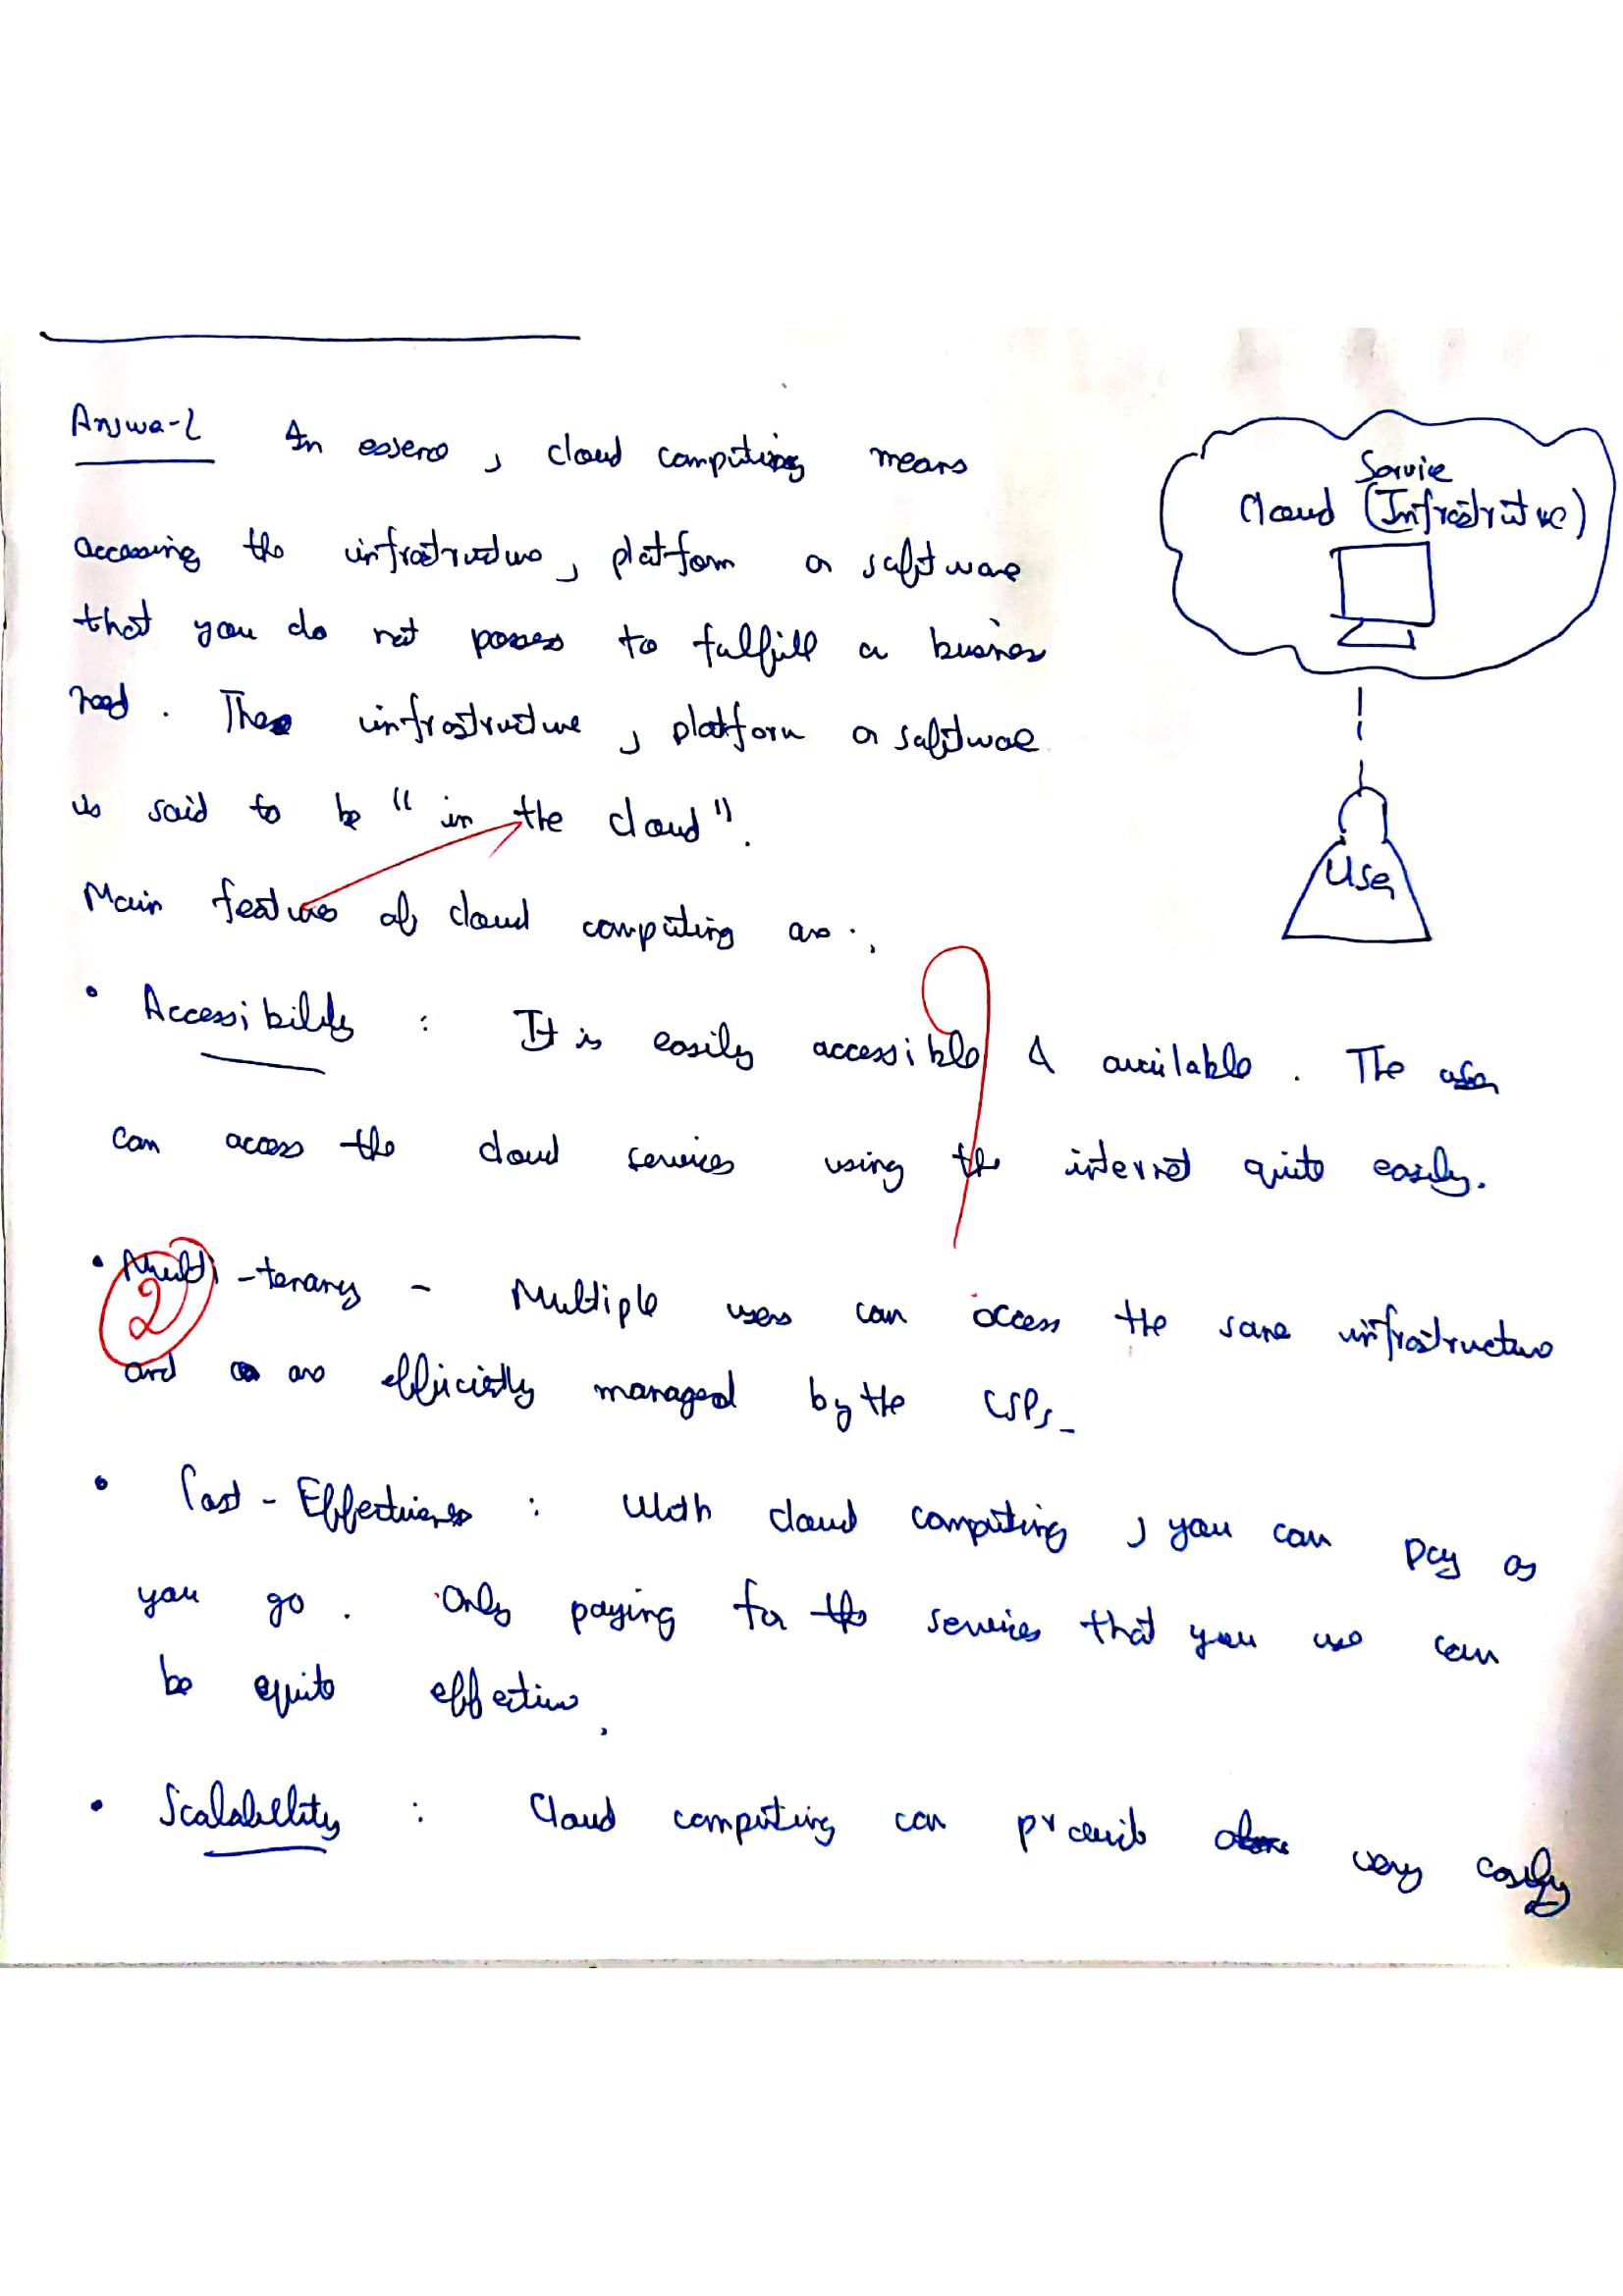 Answer-2 In essence, cloud computing means
accessing the infrastructure, platform or software
that you do not posses to fulfill a business
need. These infrastructure, platform or software
is said to be "in the cloud".
Service
Cloud (Infrastructure)
User
Main features of cloud computing are:
• Accessibility : It is easily accessible & available. The user
can access the cloud services using the internet quite easily.
• Multi-tenancy - Multiple users can access the same infrastructure
2
and are efficiently managed by the CSPs.
• Cost-Effectiveness : With cloud computing, you can pay as
you go. Only paying for the services that you use can
be quite effective.
• Scalability : Cloud computing can provide very easily